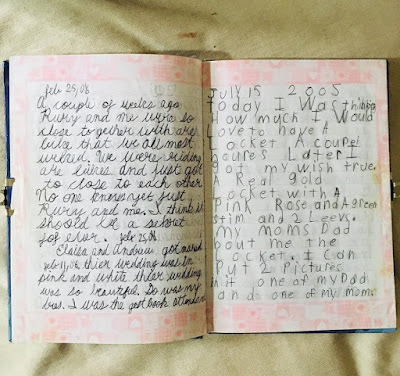 feb 25, 08
A couple of weeks ago
Rury and me were so
close to gether with are
bike that we all most
wrked. We were riding
are bikes and just got
to close to each other
No one knows yet just
Rury and me. I think it
should be a secret
for ever. feb 25, 08
Elaisa and Andrew got married
feb 17, 08 thier wedding was in
pink and white thier wedding
was so beautiful. So was my
dres. I was the gest book attendent
JUly 15 2005
today I Was thinking
How much I Would
Love to have A
Locket A coupel
houres Later I
got my wish true.
A Real gold
Locket with A
Pink Rose and A green
stim and 2 Leevs.
My moms Dad
bout me the
Locket. I Can
Put 2 Pictures
in it one of my Dad
and one of my mom.